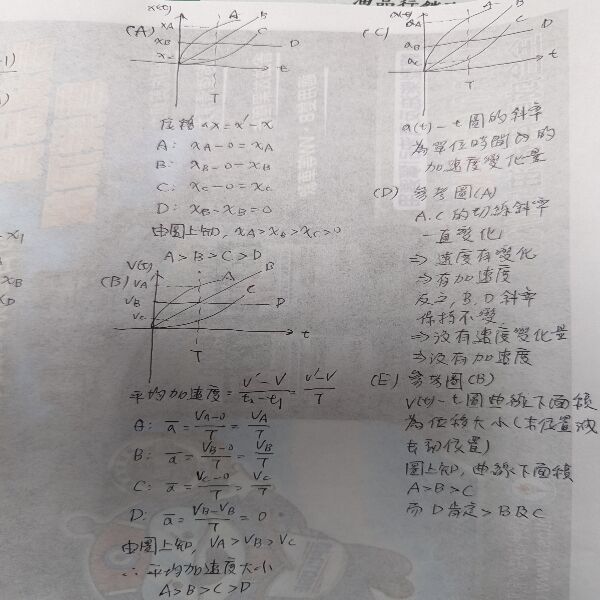 (A)
x(t)
xA
xB
xC
A
B
C
D
t
T
位移 Δx = x' - x
A: xA - 0 = xA
B: xB - 0 = xB
C: xC - 0 = xC
D: xB - xB = 0
由圖上知, xA > xB > xC > 0
A > B > C > D
(B)
V(t)
VA
VB
VC
A
B
C
D
t
T
平均加速度 = (V' - V)/(t2 - t1) = (V' - V)/T
A: a̅ = (VA - 0)/T = VA/T
B: a̅ = (VB - 0)/T = VB/T
C: a̅ = (VC - 0)/T = VC/T
D: a̅ = (VB - VB)/T = 0
由圖上知, VA > VB > VC
∴ 平均加速度大小
A > B > C > D
(C)
a(t)
aA
aB
aC
A
B
C
D
t
T
a(t) - t 圖的斜率
為單位時間內的
加速度變化量
(D) 參考圖(A)
A.C 的切線斜率
一直變化
⇒ 速度有變化
⇒ 有加速度
反之, B.D 斜率
保持不變
⇒ 沒有速度變化量
⇒ 沒有加速度
(E) 參考圖(B)
V(t) - t 圖曲線下面積
為位移大小(末位置減
去初位置)
圖上知, 曲線下面積
A > B > C
而 D 肯定 > B 及 C